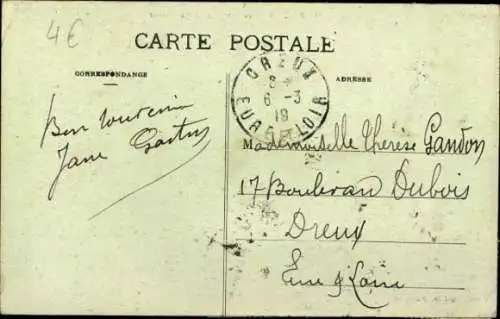 4€
CARTE POSTALE
CORRESPONDANCE
ADRESSE
DREUX
8
6 -3
19
EURE & LOIR
Bon Souvenir
Jane
Mademoiselle Thérèse Gandon
17 Boulevard Dubois
Dreux
Eure & Loir